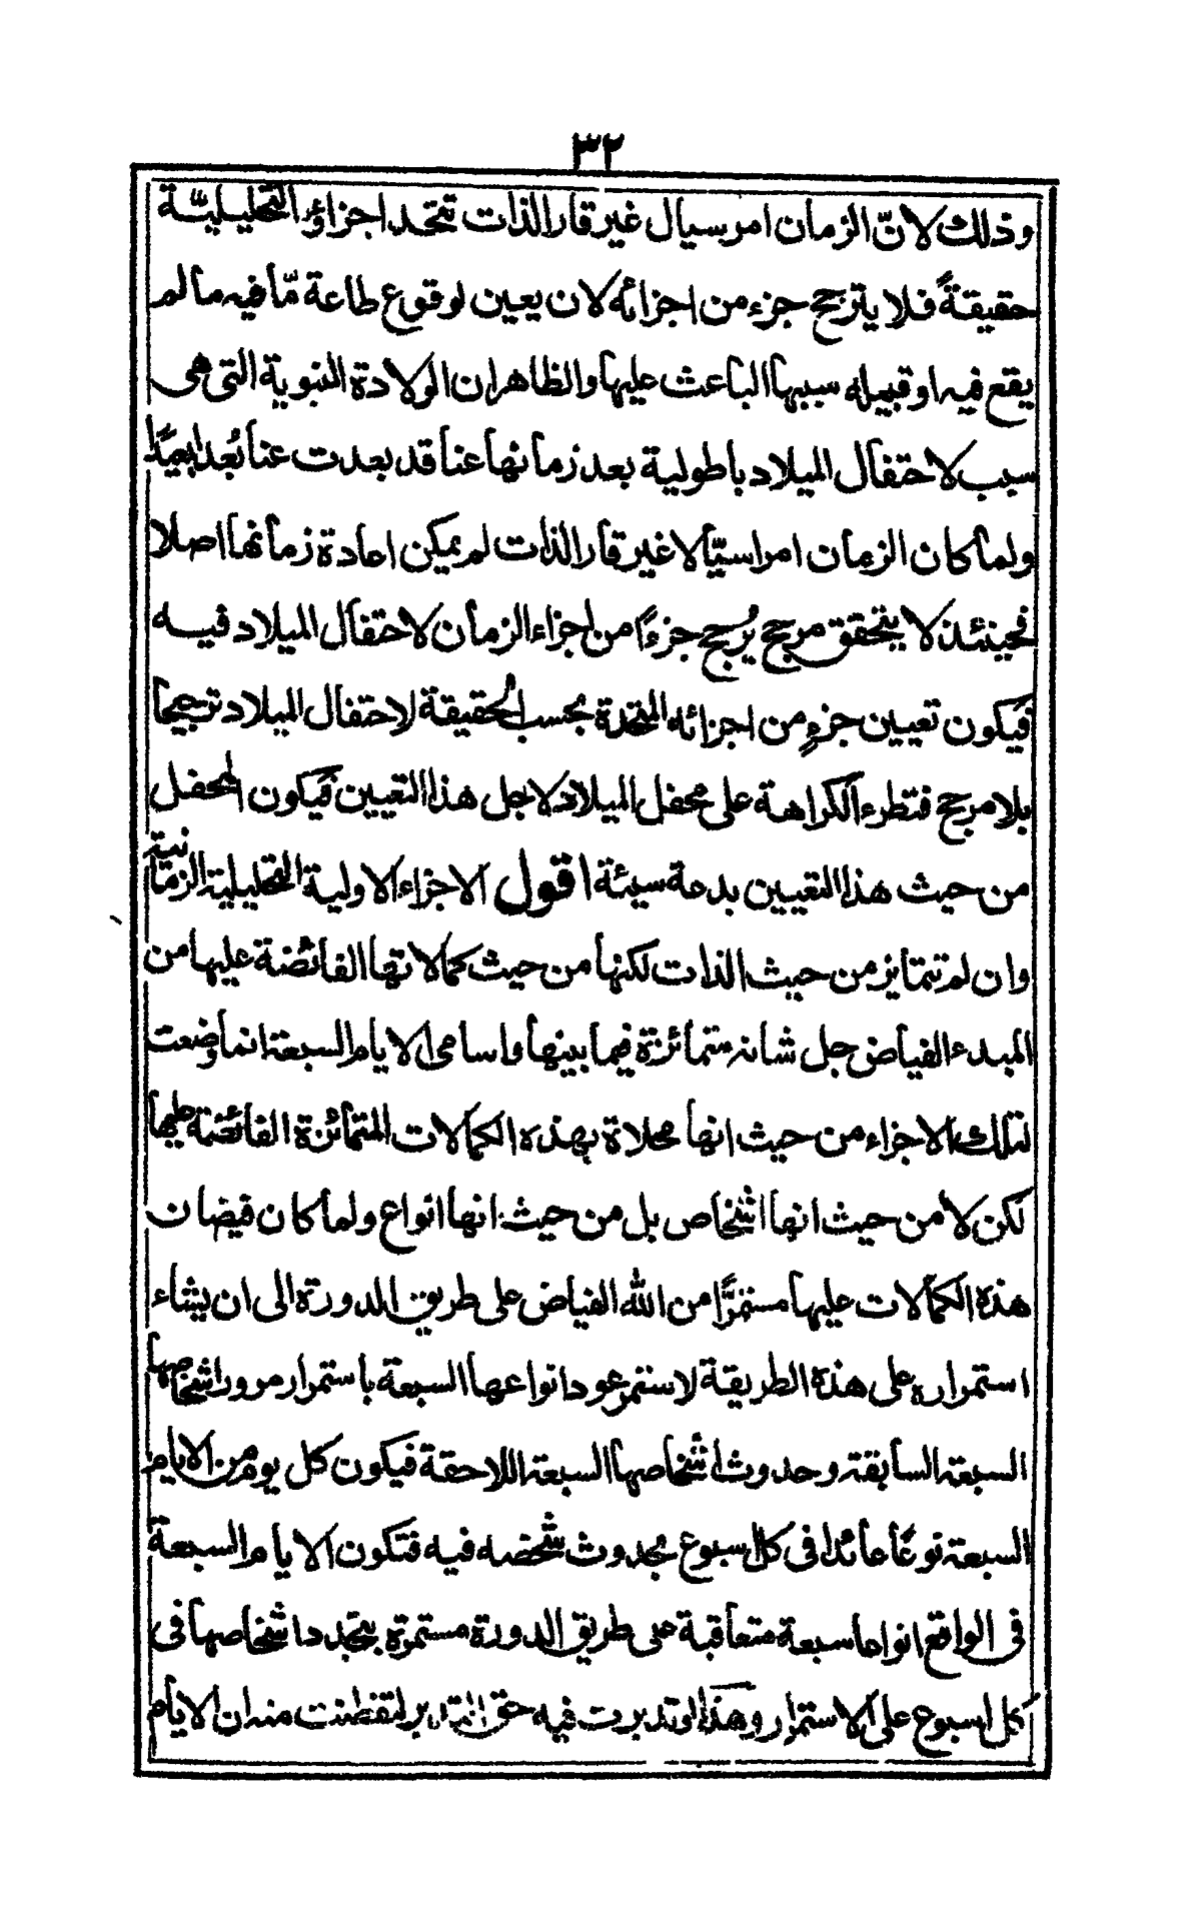 ٣٢
وذلك لانّ الزمان امر سيال غير قار الذات تتحد اجزاؤه التحليليّة
حقيقةً فلا يترجح جزء من اجزائه لان يعين لوقوع طاعة مّا فيه ما لم
يقع فيه او قبيله سببها الباعث عليها والظاهر ان الولادة النبوية التى هى
سبب لاحتفال الميلاد باطولية بعد زمانها عنا قد بعدت عنا بُعدا بعيدًا
ولما كان الزمان امرا سيّالا غير قار الذات لم يمكن اعادة زمانها اصلا
فحينئذ لا يتحقق مرجح يُرجح جزءًا من اجزاء الزمان لاحتفال الميلاد فيه
فيكون تعيين جزءٍ من اجزائه المتحدة بحسب الحقيقة لاحتفال الميلاد ترجيحا
بلا مرجح فتطرء الكراهة على محفل الميلاد لاجل هذا التعيين فيكون المحفل
من حيث هذا التعيين بدعة سيئة اقول الاجزاء الاولية التحليلية الزمانية
وان لم تتمايز من حيث الذات لكنها من حيث كمالاتها الفائضة عليها من
المبدء الفياض جل شانه متمائزة فيما بينها واسامى الايام السبعة انما وضعت
لتلك الاجزاء من حيث انها محلاة بهذه الكمالات المتمائزة الفائضة عليها
لكن لا من حيث انها اشخاص بل من حيث انها انواع ولما كان فيضان
هذه الكمالات عليها مستمرًّا من الله الفياض على طريق الدورة الى ان يشاء
استمراره على هذه الطريقة لاستمر عود انواعها السبعة باستمرار مرور اشخاصها
السبعة السابقة وحدوث اشخاصها السبعة اللاحقة فيكون كل يوم من الايام
السبعة نوعًا عائدا فى كل اسبوع بحدوث شخصه فيه فتكون الايام السبعة
فى الواقع انواعا سبعة متعاقبة على طريق الدورة مستمرة بتجدد اشخاصها فى
كل اسبوع على الاستمرار وهذا لو تدبرت فيه حق التدبر لتفطنت منه ان الايام